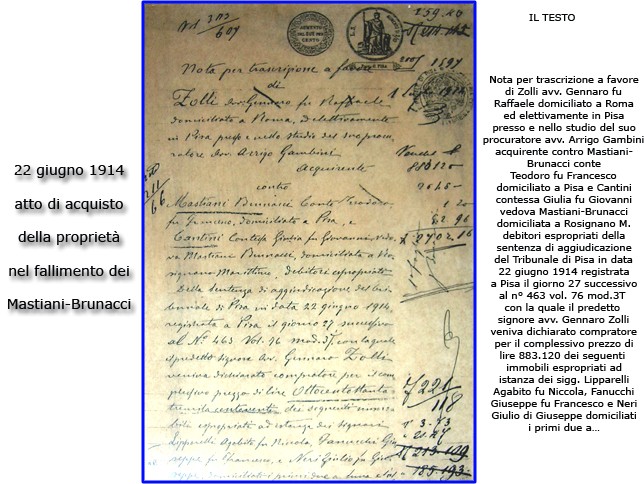 22 giugno 1914
atto di acquisto
della proprietà
nel fallimento dei
Mastiani-Brunacci
Nota per transcrizione a favore
di
Zolli Avv. Gennaro fu Raffaele
domiciliato a Roma, ed elettivamente
in Pisa presso e nello studio del suo procu-
ratore Avv. Arrigo Gambini
Acquirente
contro
Mastiani Brunacci Conte Teodoro
fu Francesco, domiciliato a Pisa, e
Cantini Contessa Giulia fu Giovanni, vedo-
va Mastiani Brunacci, domiciliata a Ro-
signano Marittimo, debitori espropriati
Della sentenza di aggiudicazione del Tri-
bunale di Pisa in data 22 giugno 1914,
registrata a Pisa il giorno 27 successivo
al N.º 463 Vol. 76 mod. 3T, con la quale
il predetto signore Avv. Gennaro Zolli
veniva dichiarato compratore per il com-
plessivo prezzo di lire Ottocentottanta
tremila centoventi dei seguenti immo-
bili espropriati ad istanza dei signori
Lipparelli Agabito fu Niccola, Fanucchi Giu-
seppe fu Francesco, e Neri Giulio di Giu-
seppe, domiciliati i primi due a
IL TESTO
Nota per trascrizione a favore
di Zolli avv. Gennaro fu
Raffaele domiciliato a Roma
ed elettivamente in Pisa
presso e nello studio del suo
procuratore avv. Arrigo Gambini
acquirente contro Mastiani-
Brunacci conte
Teodoro fu Francesco
domiciliato a Pisa e Cantini
contessa Giulia fu Giovanni
vedova Mastiani-Brunacci
domiciliata a Rosignano M.
debitori espropriati della
sentenza di aggiudicazione
del Tribunale di Pisa in data
22 giugno 1914 registrata
a Pisa il giorno 27 successivo
al n° 463 vol. 76 mod.3T
con la quale il predetto
signore avv. Gennaro Zolli
veniva dichiarato compratore
per il complessivo prezzo di
lire 883.120 dei seguenti
immobili espropriati ad
istanza dei sigg. Lipparelli
Agabito fu Niccola, Fanucchi
Giuseppe fu Francesco e Neri
Giulio di Giuseppe domiciliati
i primi due a...